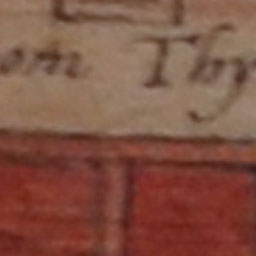 om Thy